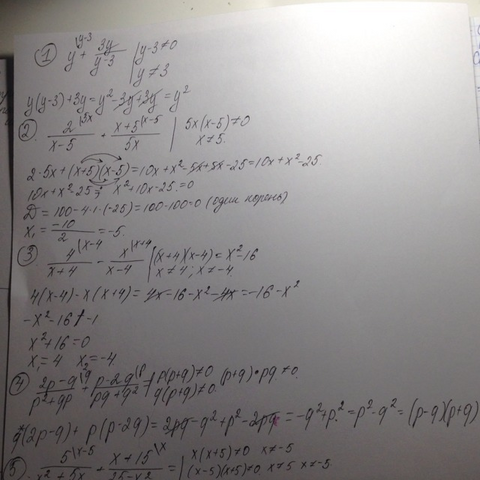 1) y + 3y/(y-3) | y-3 ≠ 0
y ≠ 3
y(y-3)+3y = y²-3y+3y = y²
2) 2\5x/(x-5) + x+5\x-5/5x | 5x(x-5) ≠ 0
x ≠ 5.
2·5x+(x+5)(x-5) = 10x+x²-5x+5x-25 = 10x+x²-25
10x+x²-25 x²+10x-25 = 0
D = 100-4·1·(-25) = 100-100 = 0 (один корень)
x₁ = -10/2 = -5
3) 4\x-4/(x+4) - x\x+4/(x-4) | (x+4)(x-4) = x²-16
x ≠ 4; x ≠ -4
4(x-4)-x(x+4) = 4x-16-x²-4x = -16-x²
-x²-16 -1
x²+16 = 0
x₁ = 4 x₂ = -4
4) 2p-q\q/(p²+qp) p-2q\p/(pq+q²) p(p+q) ≠ 0 (p+q)·pq ≠ 0
q(p+q) ≠ 0
q(2p-q)+p(p-2q) = 2pq-q²+p²-2pq = -q²+p² = p²-q² = (p-q)(p+q)
5) 5\x-5/(x²+5x) + x+15\x/(25-x²) = | x(x+5) ≠ 0 x ≠ -5
(x-5)(x+5) ≠ 0 x ≠ 5 x ≠ -5